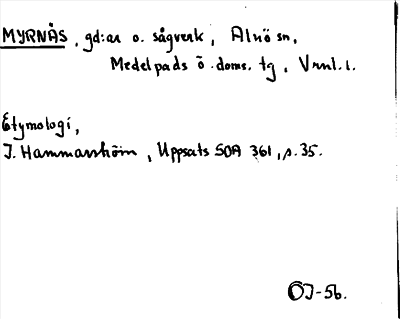 MYRNÄS, gd:ar o. sågverk, Alnö sn,
Medelpads ö. doms. tg, Vrnl. l.
Etymologi,
I. Hammarström, Uppsats SOA 361, s. 35.
OJ-56.